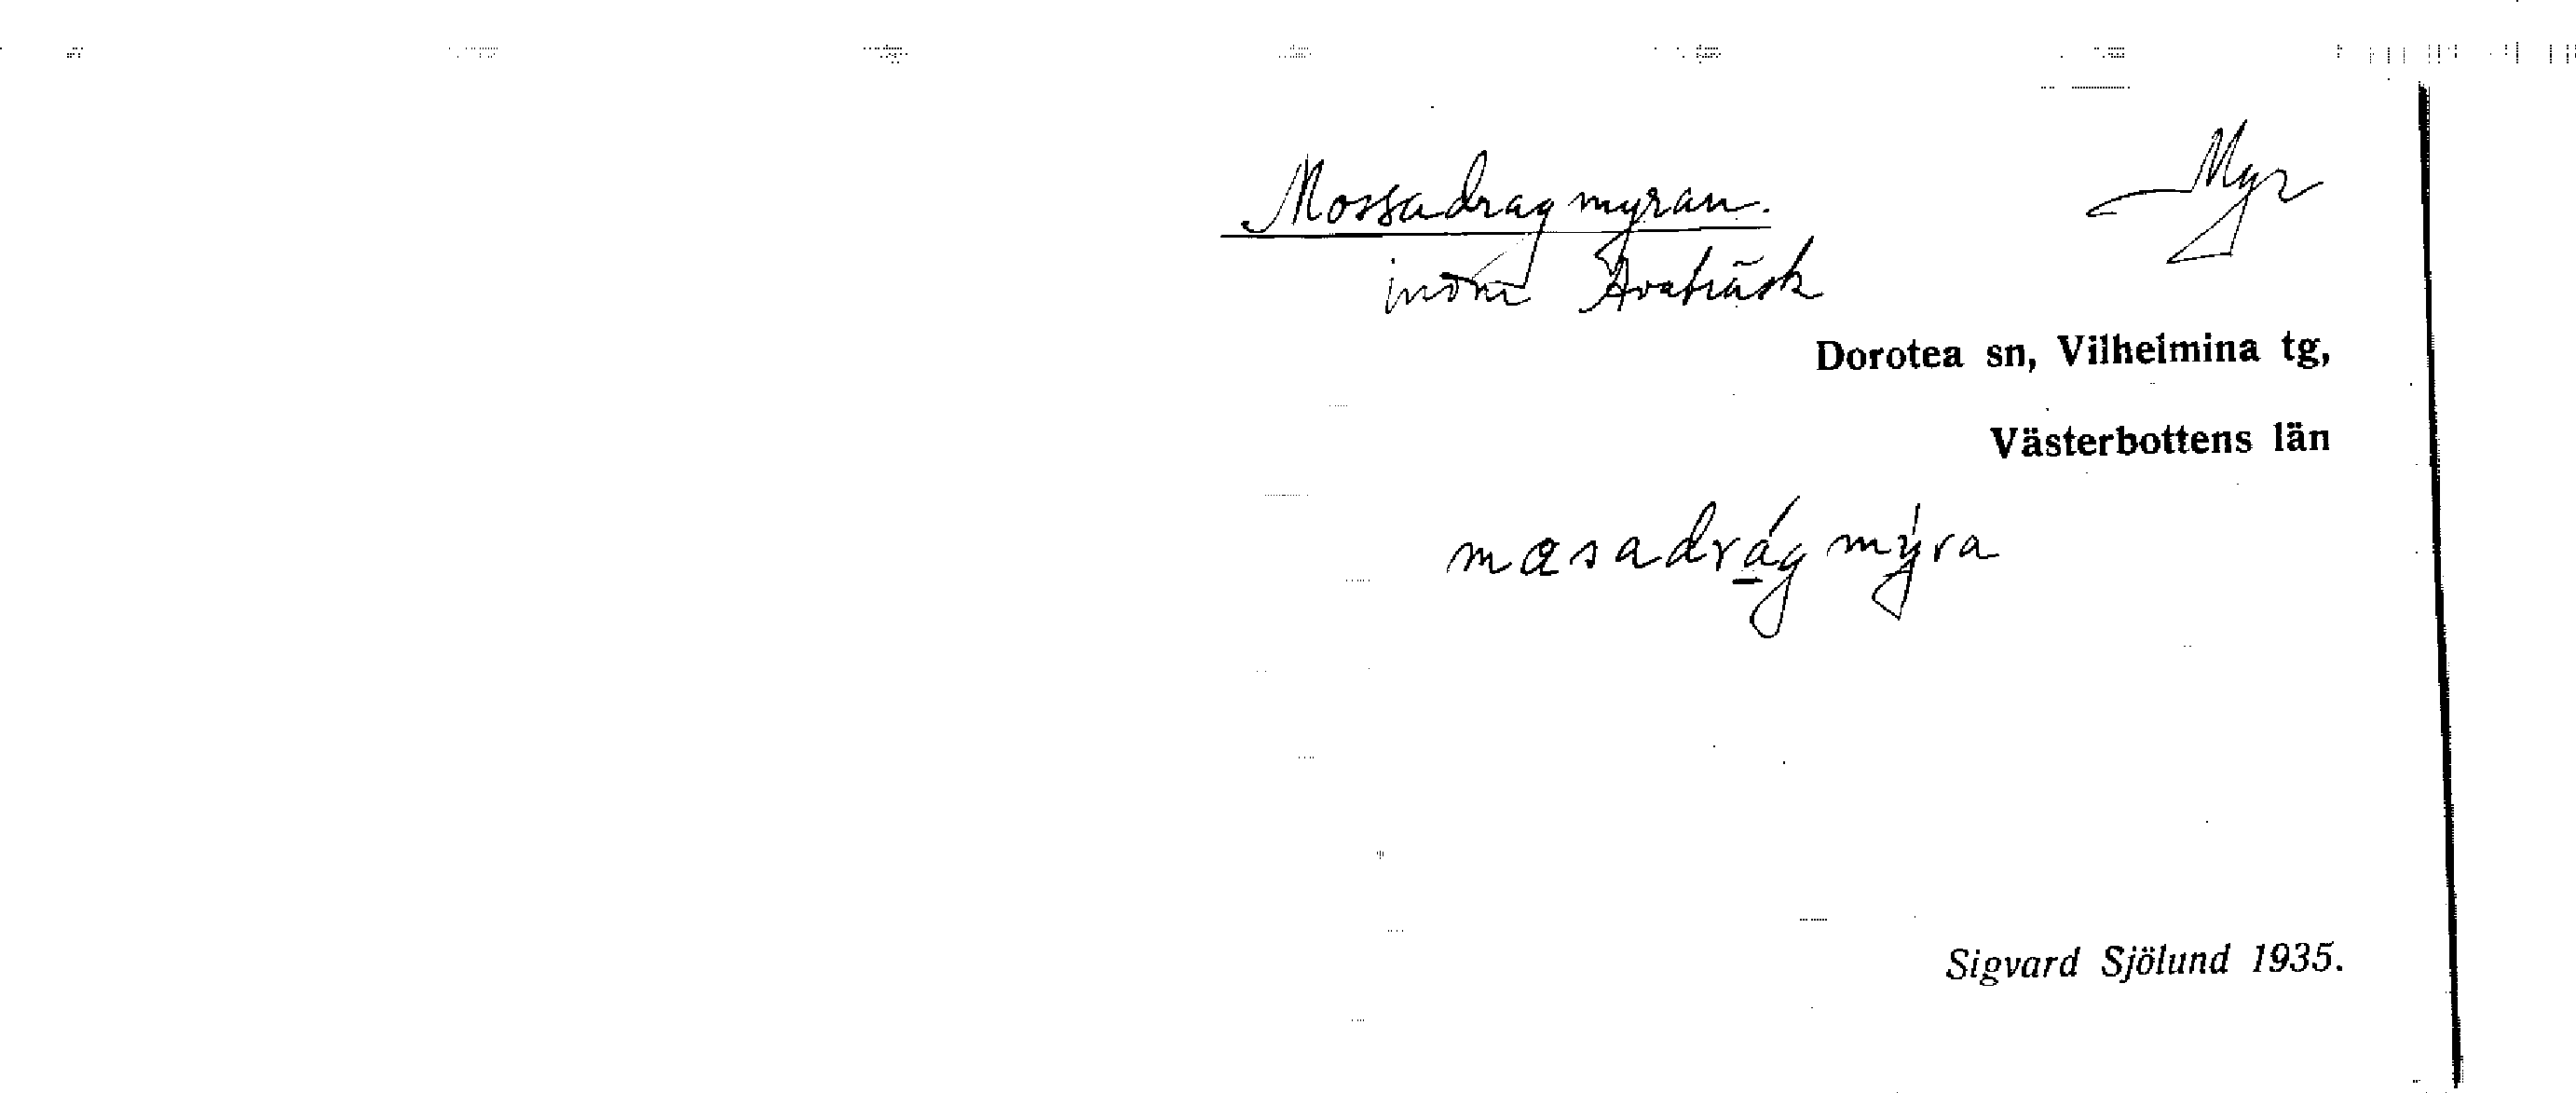 Mossadragmyran.
Myr
inom Avaträsk
Dorotea sn, Vilhelmina tg,
Västerbottens län
mɑsadrág mýra
Sigvard Sjölund 1935.